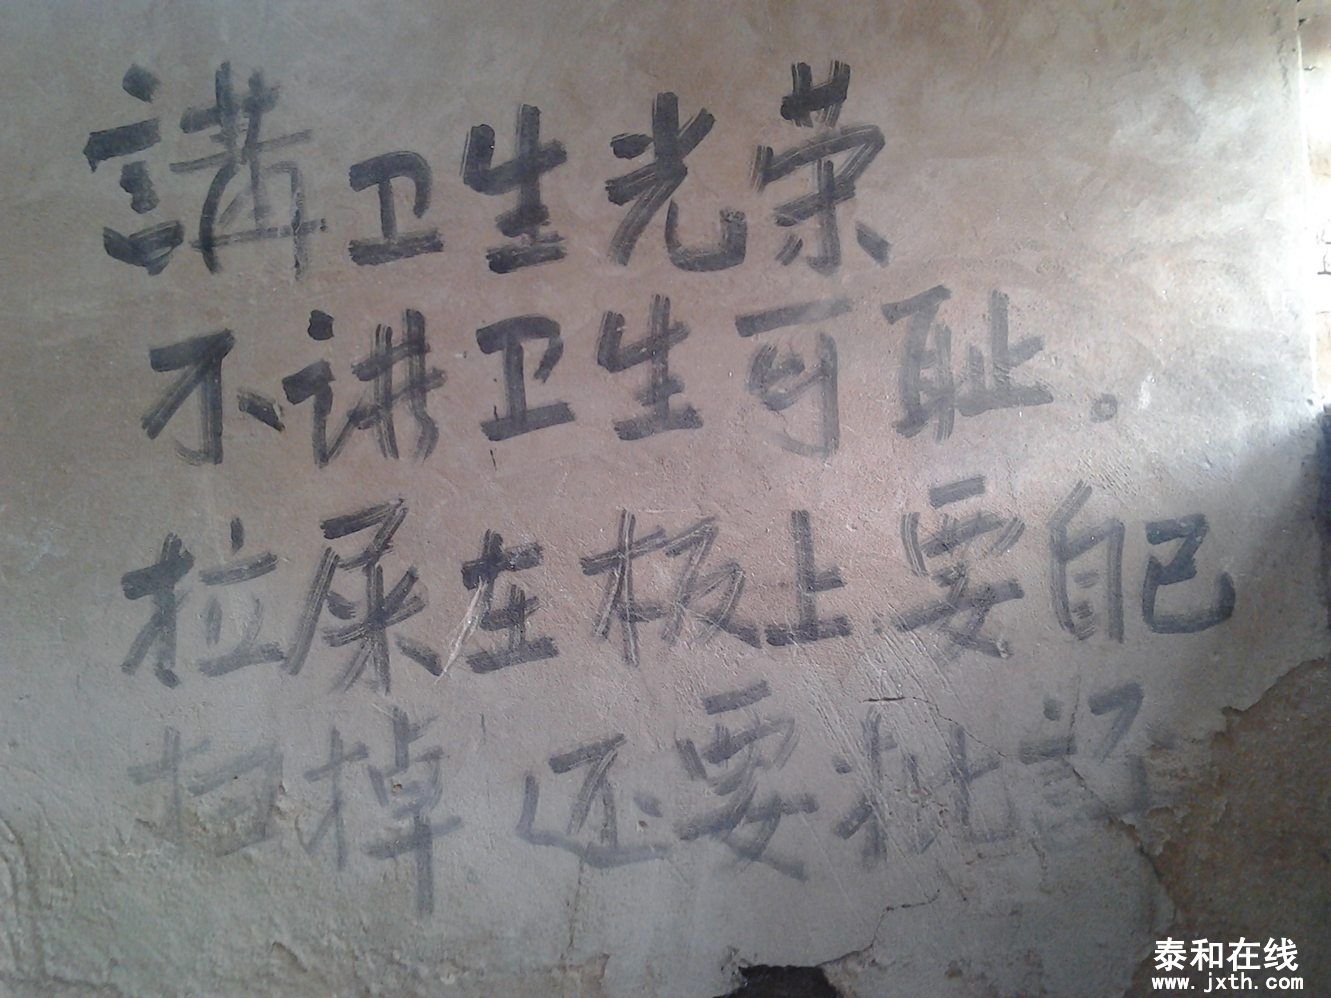 講卫生光荣
不讲卫生可耻。
拉屎在板上要自己
扫掉还要批评
泰和在线
www.jxth.com